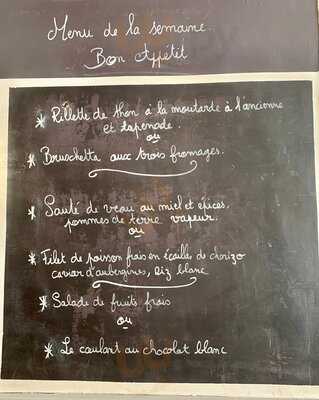 Menu de la semaine.
Bon Appétit
* Rillette de thon à la moutarde à l'ancienne
et tapenade.
ou
* Bruschetta aux trois fromages.
* Sauté de veau au miel et épices,
pommes de terre vapeur.
ou
* Filet de poisson frais en écailles de chorizo
caviar d'aubergines, Riz blanc
* Salade de fruits frais
ou
* Le coulant au chocolat blanc